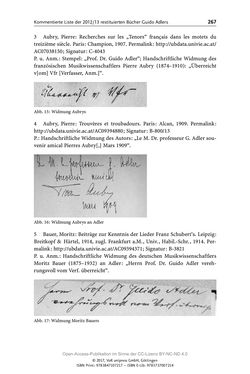 Kommentierte Liste der 2012/13 restituierten Bücher Guido Adlers 267
3 Aubry, Pierre: Recherches sur les „Tenors“ français dans les motets du
treizième siècle. Paris: Champion, 1907. Permalink: http://ubdata.univie.ac.at/
AC03738130; Signatur: B-4043
P. u. Anm.: Stempel: „Prof. Dr. Guido Adler“; Handschriftliche Widmung des
französischen Musikwissenschaftlers Pierre Aubry (1874–1910): „Überreicht
v[om] Vfr [Verfasser, Anm.]“.
Überreicht v. Vfr
Abb. 15: Widmung Aubrys
4 Aubry, Pierre: Trouvères et troubadours. Paris: Alcan, 1909. Permalink:
http://ubdata.univie.ac.at/AC09394880; Signatur: B-800/13
P: Handschriftliche Widmung des Autors: „Le M. Dr. professeur G. Adler sou-
venir amical Pierres Aubry[,] Mars 1909“.
professeur G. Adler
souvenir amical
Pierre Aubry
Mars 1909
Abb. 16: Widmung Aubrys an Adler
5 Bauer, Moritz: Beiträge zur Kenntnis der Lieder Franz Schubert's. Leipzig:
Breitkopf & Härtel, 1914, zugl. Frankfurt a.M., Univ., Habil.-Schr., 1914. Per-
malink: http://ubdata.univie.ac.at/AC09394531; Signatur: B-3821
P. u. Anm.: Handschriftliche Widmung des deutschen Musikwissenschaftlers
Moritz Bauer (1875–1932) an Adler: „Herrn Prof. Dr. Guido Adler vereh-
rungsvoll vom Verf. überreicht“.
Herrn Prof. Dr. Guido Adler
verehrungsvoll vom Verf. überreicht
Abb. 17: Widmung Moritz Bauers
Open-Access-Publikation im Sinne der CC-Lizenz BY-NC-ND 4.0
© 2017, V&R unipress GmbH, Göttingen
ISBN Print: 9783847107217 – ISBN E-Lib: 9783737007214